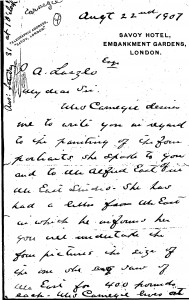 Augt 22nd 1907
SAVOY HOTEL,
EMBANKMENT GARDENS,
LONDON.
Carnegie
A. Laszlo Esqr
My dear Sir.
Mrs Carnegie desires
me to write you in regard
to the painting of the four
portraits she spoke to you
and to Mr Alfred East
Mr East She has
had a letter from Mr East
in which he informs her
you will undertake the
four pictures the size of
the one she saw of
Mr East for 400 pounds
each. Mrs Carnegie